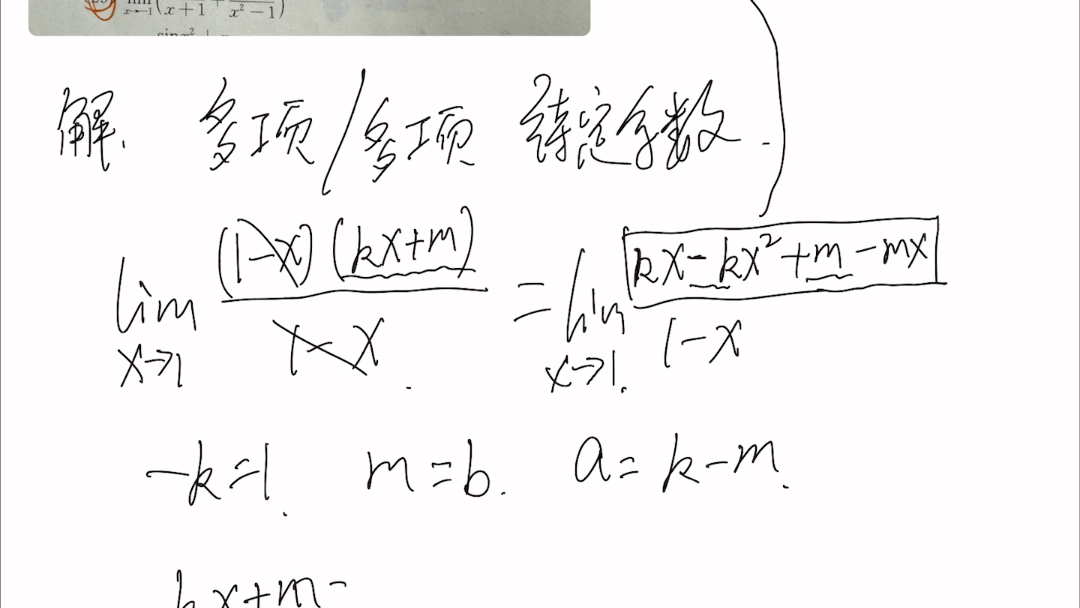 lim x→-1 (x+1 x²-1)
解. 多项/多项 待定系数.
lim x→1 (1-x)(kx+m) / 1-x = lim x→1 kx-kx²+m-mx / 1-x
-k=1. m=b. a=k-m.
kx+m=